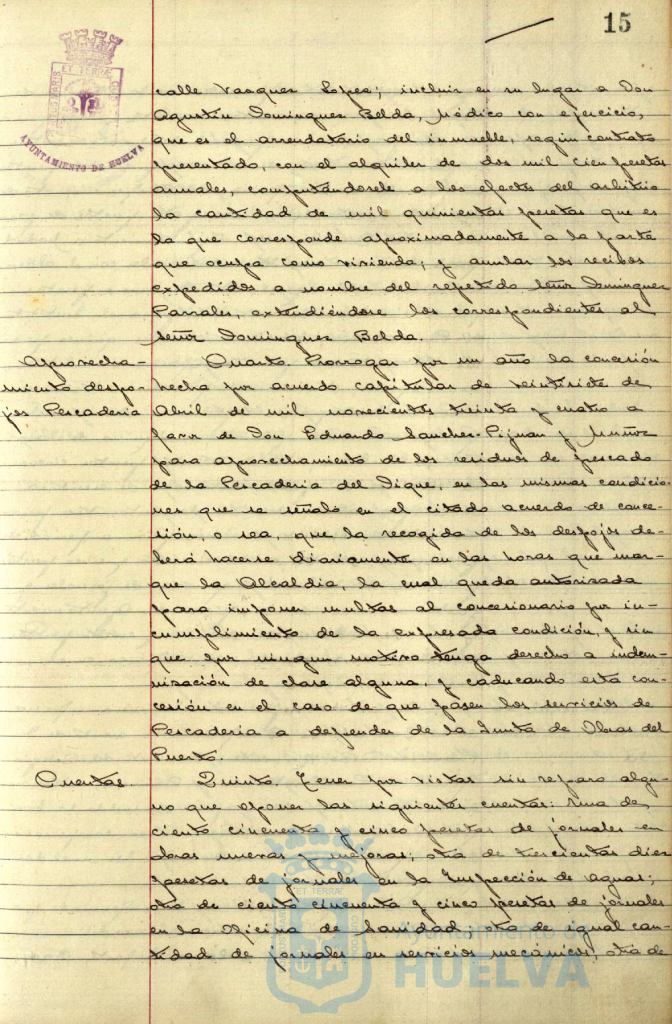 15
PORTUS MARIS ET TERRÆ CUSTODIA
AYUNTAMIENTO DE HUELVA
calle Vazquez Lopez; incluir en su lugar a Don
Agustín Dominguez Belda, Médico con ejercicio,
que es el arrendatario del inmueble, según contrato
presentado, con el alquiler de dos mil cien pesetas
anuales, computándosele a los efectos del arbitrio
la cantidad de mil quinientas pesetas que es
la que corresponde aproximadamente a la parte
que ocupa como vivienda; y anular los recibos
expedidos a nombre del repetido señor Dominguez
Parrales, extendiéndose los correspondientes al
señor Dominguez Belda.
Aprovecha-
miento despo-
jos Pescaderia
Cuarto. Prorrogar por un año la concesión
hecha por acuerdo capitular de veintisiete de
Abril de mil novecientos treinta y cuatro a
favor de Don Eduardo Sanchez-Pijuan y Muñoz
para aprovechamiento de los residuos de pescado
de la Pescaderia del Dique, en las mismas condicio-
nes que se señaló en el citado acuerdo de conce-
sión, o sea, que la recogida de los despojos de-
berá hacerse diariamente en las horas que mar-
que la Alcaldia, la cual queda autorizada
para imponer multas al concesionario por in-
cumplimiento de la expresada condición, y sin
que por ningun motivo tenga derecho a indem-
nización de clase alguna, y caducando esta con-
cesión en el caso de que pasen los servicios de
Pescaderia a depender de la Junta de Obras del
Puerto.
Cuentas.
Quinto. Tener por vistas sin reparo algu-
no que oponer las siguientes cuentas: Una de
ciento cincuenta y cinco pesetas de jornales en
obras nuevas y mejoras; otra de trescientas diez
pesetas de jornales en la Inspección de aguas;
otra de ciento cincuenta y cinco pesetas de jornales
en la Oficina de Sanidad; otra de igual can-
tidad de jornales en servicios mecánicos; otra de
Ayuntamiento de
HUELVA